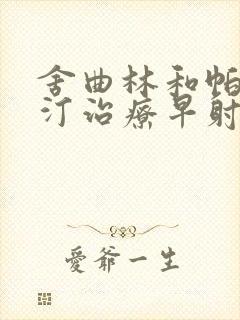 舍曲林和帕
汀治療早射
愛爺一生